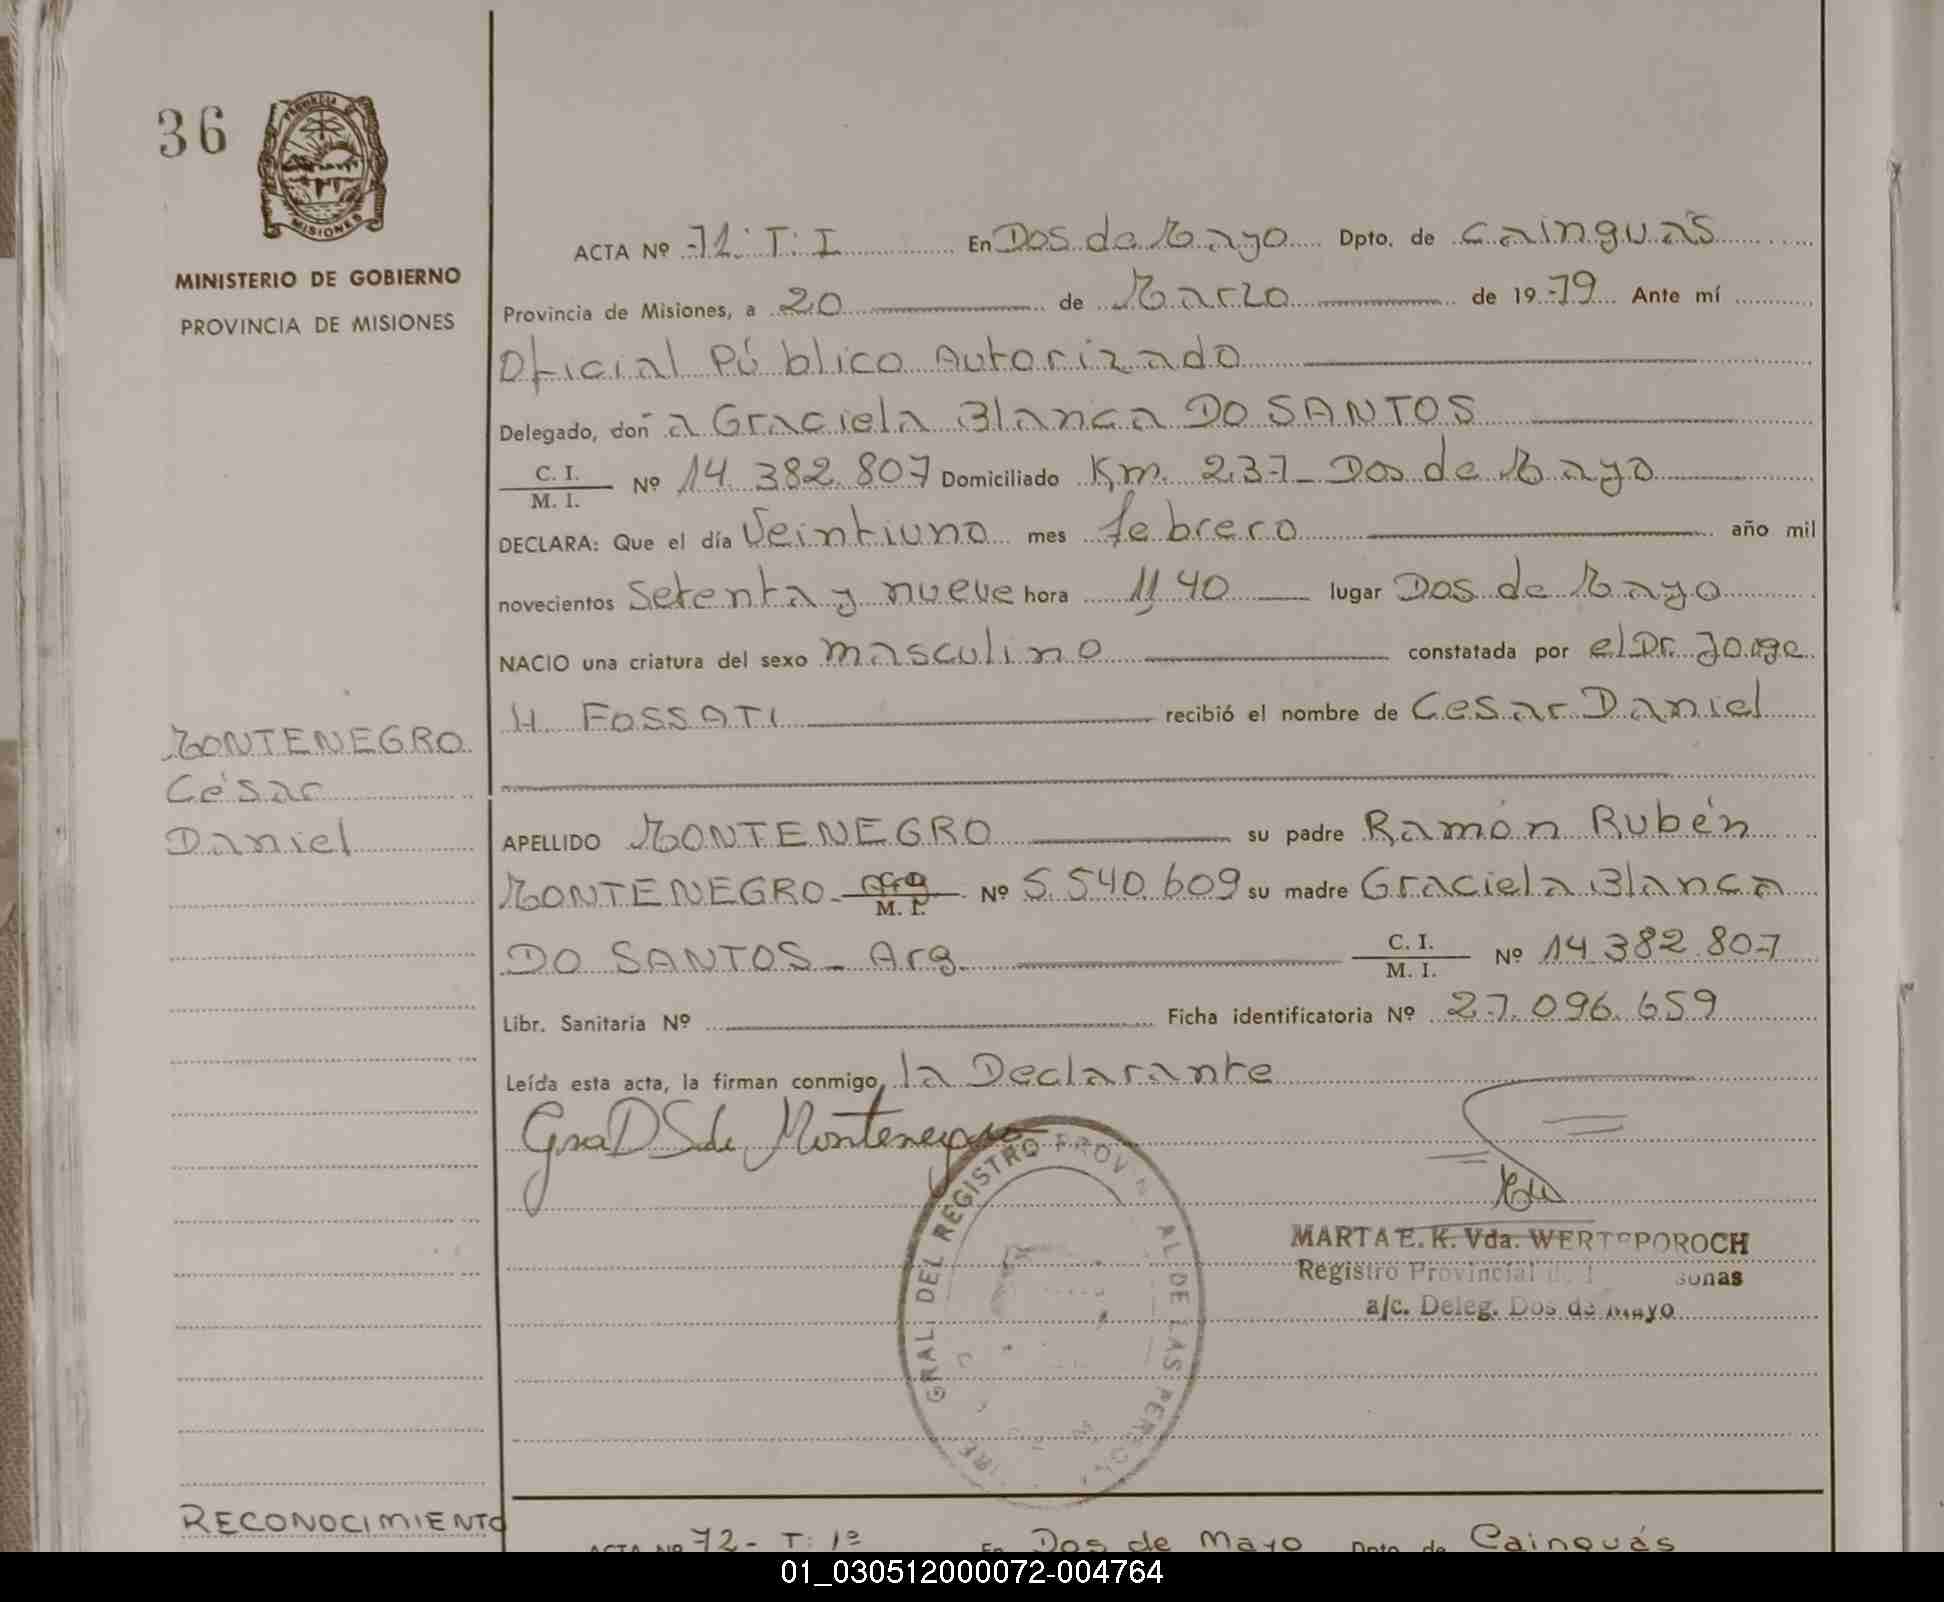 36
PROVINCIA DE
MISIONES
MINISTERIO DE GOBIERNO
PROVINCIA DE MISIONES
ACTA Nº 71: T: I En Dos de Mayo Dpto. de Cainguás
Provincia de Misiones, a 20 de Marzo de 19 79 Ante mí
Oficial Público Autorizado
Delegado, don a Graciela Blanca DO SANTOS
C. I.
M. I. Nº 14.382.807 Domiciliado Km. 237 - Dos de Mayo
DECLARA: Que el día Veintiuno mes febrero año mil
novecientos Setenta y nueve hora 11,40 lugar Dos de Mayo
NACIO una criatura del sexo masculino constatada por el Dr. Jorge
H. FOSSATI recibió el nombre de Cesar Daniel
MONTENEGRO
César
Daniel
APELLIDO MONTENEGRO su padre Ramón Rubén
MONTENEGRO - Arg M. I. Nº 5.540.609 su madre Graciela Blanca
DO SANTOS - Arg. C. I.
M. I. Nº 14.382.807
Libr. Sanitaria Nº Ficha identificatoria Nº 27.096.659
Leída esta acta, la firman conmigo, la Declarante
GraDSde Montenegro
GRAL. DEL REGISTRO PROVIN AL DE LAS PER
MARTA E. K. Vda. WERT POROCH
Registro Provincial sonas
a/c. Deleg. Dos de Mayo
RECONOCIMIENTO
ACTA Nº 72 - T: 1º En Dos de Mayo Dpto. de Cainguás
01_030512000072-004764